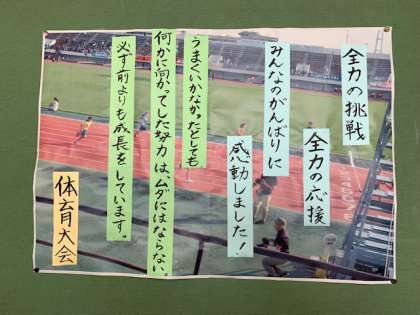 全力の挑戦
全力の応援
みんなのがんばりに
感動しました!
うまくいかなかったとしても
何かに向かってした努力は、ムダにはならない。
必ず前よりも成長をしています。
体育大会